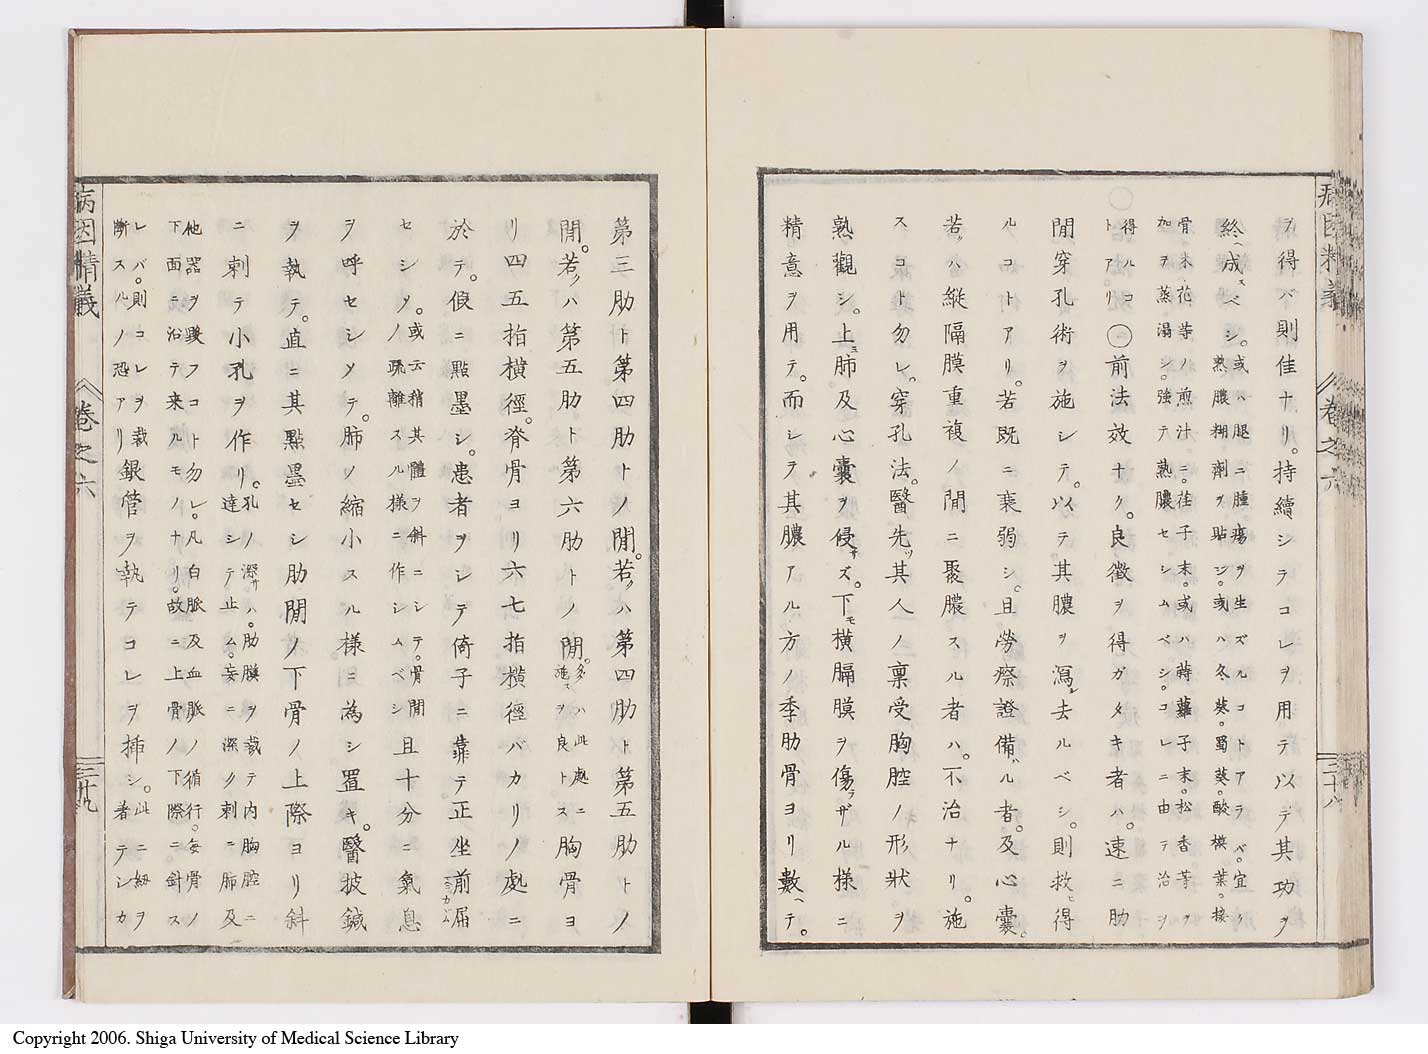 病因精義
卷之六
三十八
ヲ得バ則佳ナリ。持續シラコレヲ用テ以テ其功ヲ
終ヘ成スベシ。或ハ腿ニ腫瘍ヲ生ズルコトアラバ。宜ク
熟膿糊劑ヲ貼ジ。或ハ冬葵。蜀葵。酸模葉。接
骨木花等ノ煎汁ニ。荏子末。或ハ蒔蘿子末。松香等ヲ
加ヲ蒸溻シ。強テ熟膿セシムベシ。コレニ由テ治ヲ
得ルコ
トアリ
○前法效ナク。良徴ヲ得ガタキ者ハ。速ニ肋
間穿孔術ヲ施シテ。以テ其膿ヲ瀉シ去ルベシ。則救ヒ得
ルコトアリ。若既ニ衰弱シ。且勞瘵證備ハル者。及心囊。
若クハ縱隔膜重複ノ間ニ聚膿スル者ハ。不治ナリ。施
スコト勿レ。穿孔法。醫先ツ其人ノ稟受胸腔ノ形狀ヲ
熟觀シ。上ミ肺及心囊ヲ侵サズ。下モ横膈膜ヲ傷ラザル樣ニ
精意ヲ用テ。而シテ其膿アル方ノ季肋骨ヨリ數ヘテ。
第三肋ト第四肋トノ間。若クハ第四肋ト第五肋トノ
間。若クハ第五肋ト第六肋トノ間。多ハ此處ニ
施スヲ良トス
胸骨ヨ
リ四五指横徑。脊骨ヨリ六七指横徑バカリノ處ニ
於テ。假ニ點墨シ。患者ヲシテ倚子ニ靠テ正坐前屈
セシメ。或云稍其體ヲ斜ニシテ。骨間
ノ疏離スル樣ニ作シムベシ
且十分ニ氣息
ヲ呼セシメテ。肺ノ縮小スル樣ニ為シ置キ。醫披鍼
ヲ執テ。直ニ其點墨セシ肋間ノ下骨ノ上際ヨリ斜
ニ刺テ小孔ヲ作リ。孔ノ深サハ。肋膜ヲ截テ内胸腔ニ
達シテ止ム。妄ニ深ク刺ニ肺及
他器ヲ損フコト勿レ。凡白脈及血脈ノ循行。每骨ノ
下面ニ沿テ来ルモノナリ。故ニ上骨ノ下際ニ針ス
レバ。則コレヲ截
断スルノ恐アリ
銀管ヲ執テコレヲ挿シ。此ニ紐ヲ
著テシカ
病因精義
卷之六
三十九
Copyright 2006. Shiga University of Medical Science Library